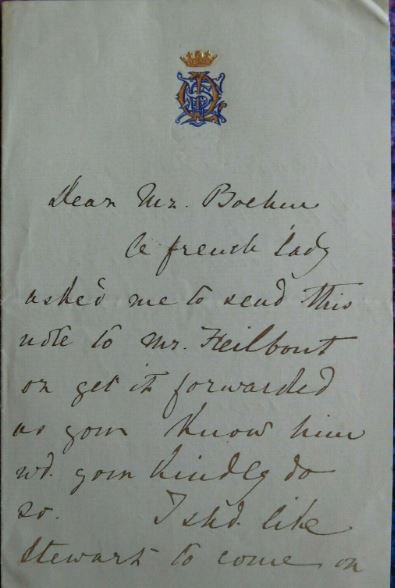 Dear Mr. Boehm
A french lady
asked me to send this
note to Mr. Heilbout
or get it forwarded
as you know him
wd. you kindly do
so. I shd. like
Stewart to come on